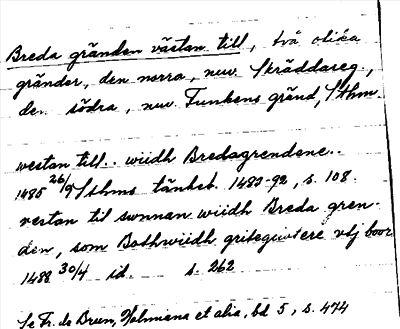 Breda gränden västan till, två olika
gränder, den norra, nuv. Skräddareg.,
den södra, nuv. Funkens gränd, Sthm.
westan till.. wiidh Bredagrendene..
1485 26/9 Sthms tänkeb. 1483-92, s. 108.
vestan til sunnan wiidh Breda gren-
den, som Bothwiidh gritegiutere vtj boor
1488 30/4 id. s. 262
Se Fr. de Brun, Holmiana et alia, bd 5, s. 474